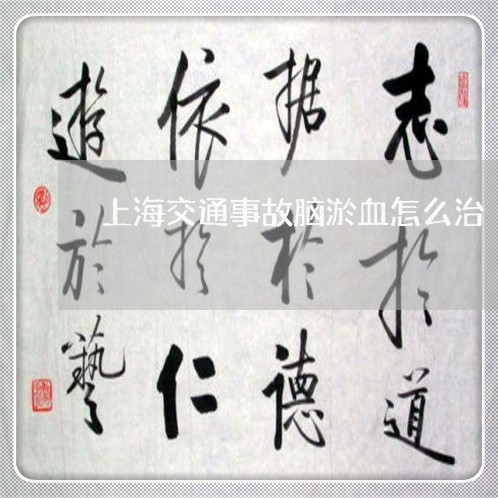 志於道
据於德
依於仁
遊於藝
上海交通事故脑淤血怎么治